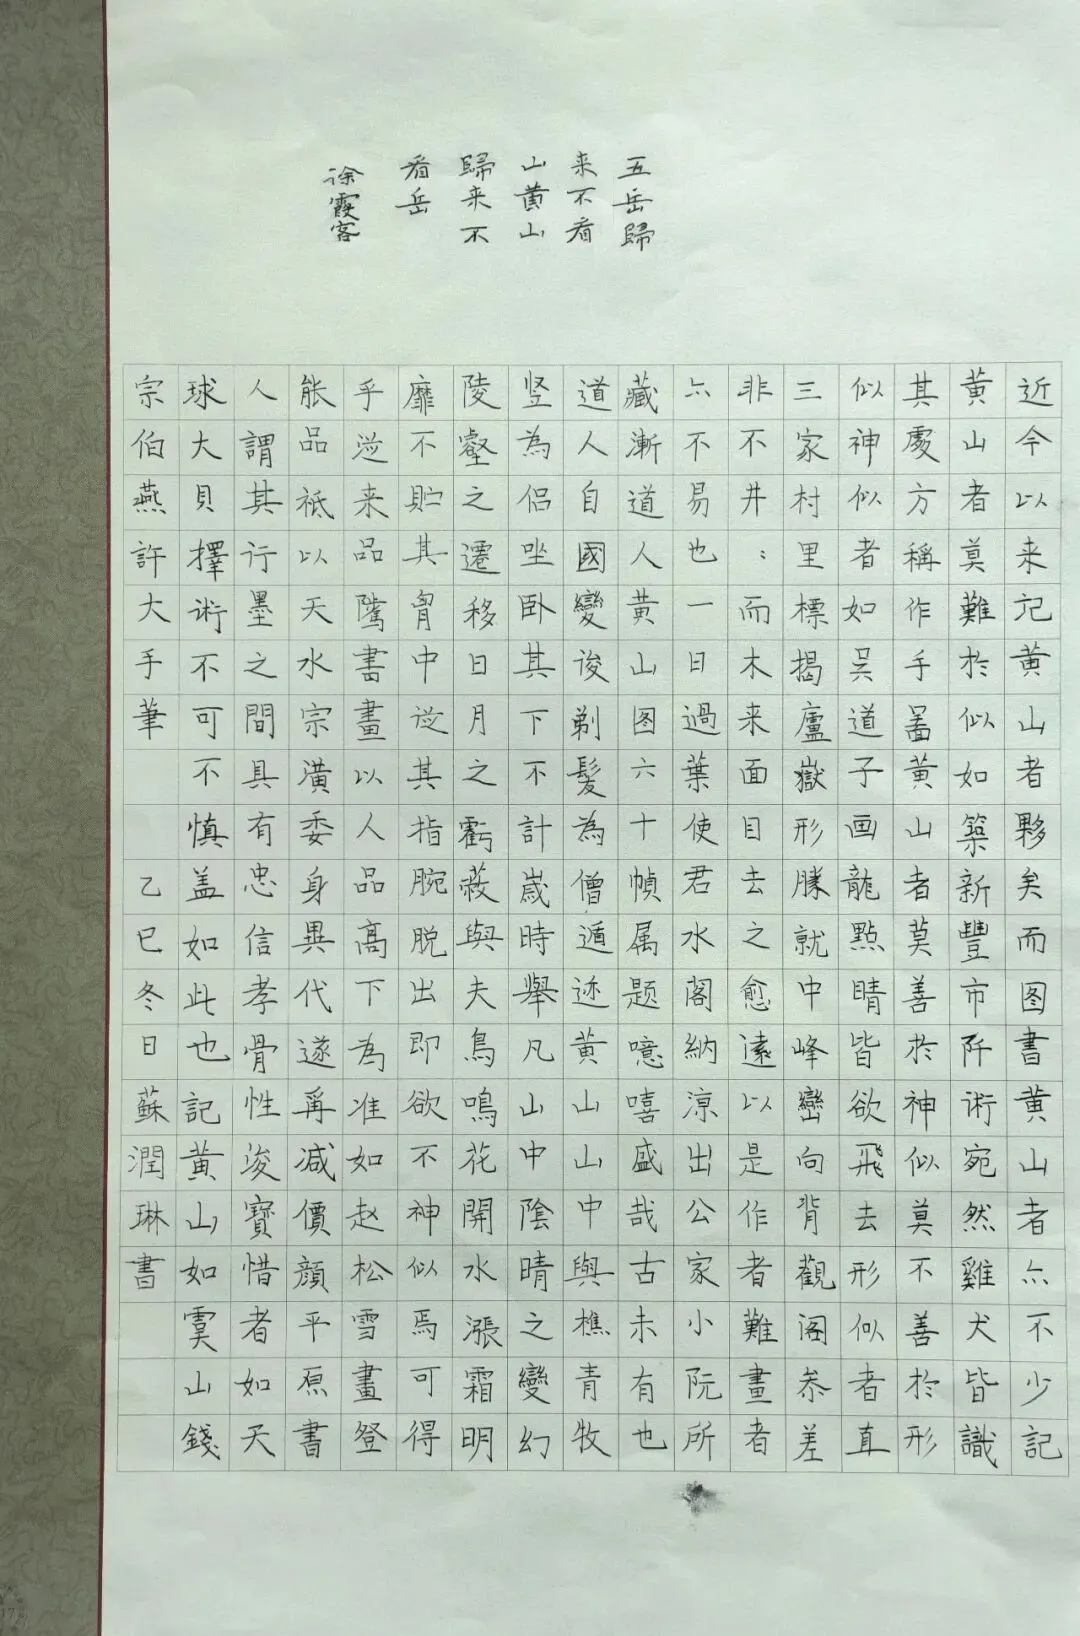 五岳歸
来不看
山黄山
歸来不
看岳
徐霞客
近今以来记黄山者夥矣而图書黄山者亦不少記
黄山者莫難於似如築新豐市阡術宛然雞犬皆識
其處方稱作手啚黄山者莫善於神似莫不善於形
似神似者如吴道子画龍點睛皆欲飛去形似者直
三家村里標揭廬嶽形勝就中峰巒向背觀阁参差
非不井:而木来面目去之愈遠以是作者難畫者
六不易也一日過葉使君水阁納凉出公家小阮所
藏漸道人黄山图六十幀属题噫嘻盛哉古未有也
道人自國變後剃髮為僧遁迹黄山山中與樵青牧
竖為侣坐卧其下不計歳時舉凡山中陰晴之變幻
陵壑之遷移日月之虧蔽與夫鳥鳴花開水漲霜明
靡不貯其胷中従其指腕脱出即欲不神似焉可得
乎従来品隲書畫以人品高下為准如赵松雪畫登
能品祗以天水宗潢委身異代遂再减價顔平原書
人謂其行墨之間具有忠信孝骨性浚寶惜者如天
球大貝擇術不可不慎盖如此也記黄山如虞山錢
宗伯燕許大手筆
乙巳冬日蘇潤琳書